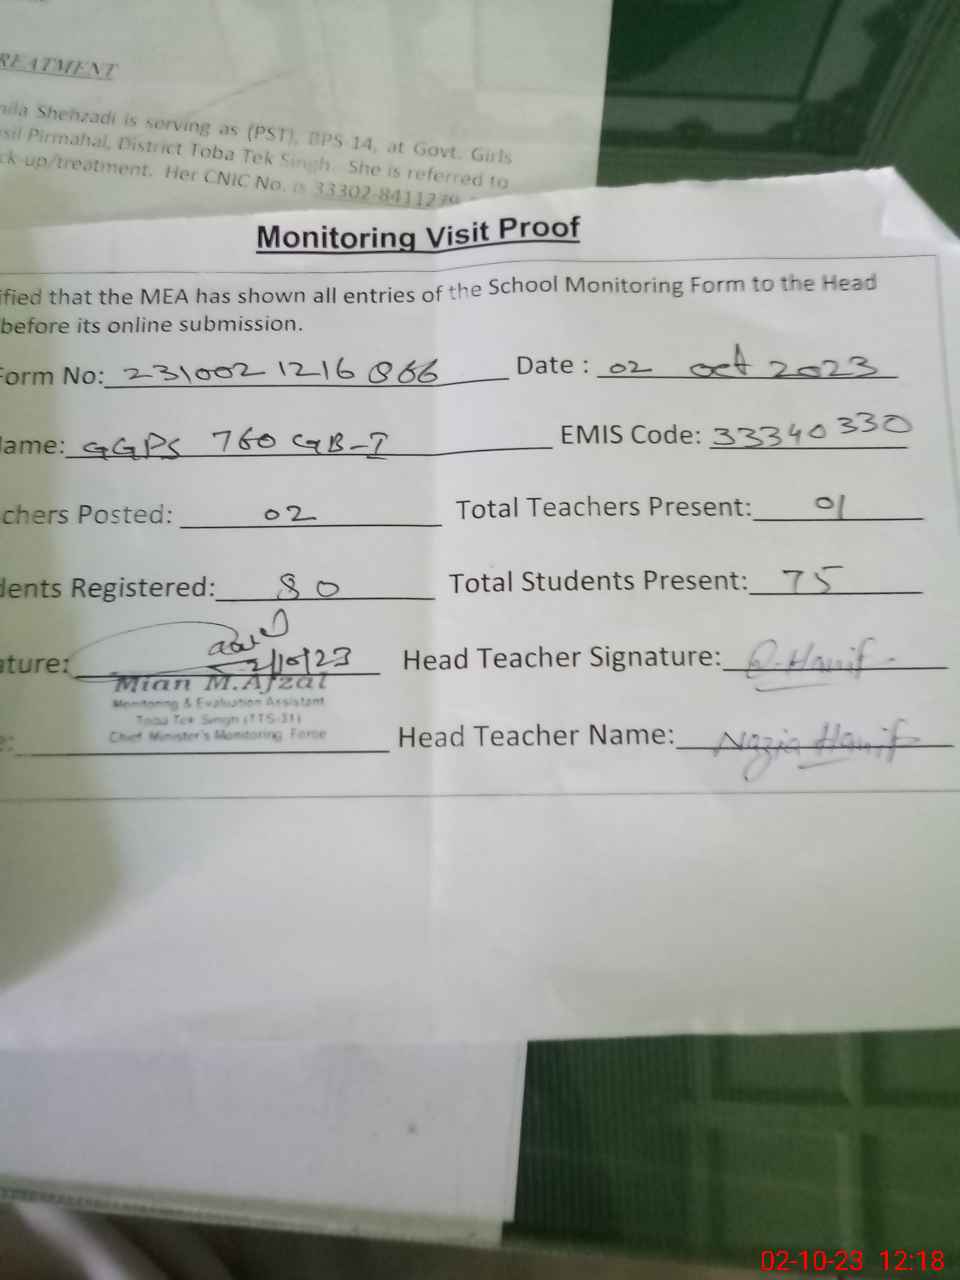 REATMENT
nila Shehzadi is serving as (PST), BPS 14, at Govt. Girls
sil Pirmahal, District Toba Tek Singh. She is referred to
ck-up/treatment. Her CNIC No. is 33302-8411279
Monitoring Visit Proof
ified that the MEA has shown all entries of the School Monitoring Form to the Head
before its online submission.
Form No: 231002 1216 866 Date : 02 oct 2023
Name: GGPS 760 GB-I EMIS Code: 33340330
chers Posted: 02 Total Teachers Present: 01
dents Registered: 80 Total Students Present: 75
ature: 2/10/23 Head Teacher Signature: Hanif
Mian M.Afzal
Monitoring & Evaluation Assistant
Toba Tek Singh (TTS-31)
Chief Minister's Monitoring Force
e: Head Teacher Name: Nazia Hanif
02-10-23 12:18